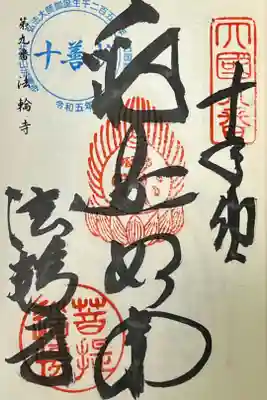 四國第九番
奉納
釈迦如来
法輪寺
第九番 法輪寺
弘法大師御誕生千二百五十年
十善
令和五年
菩提